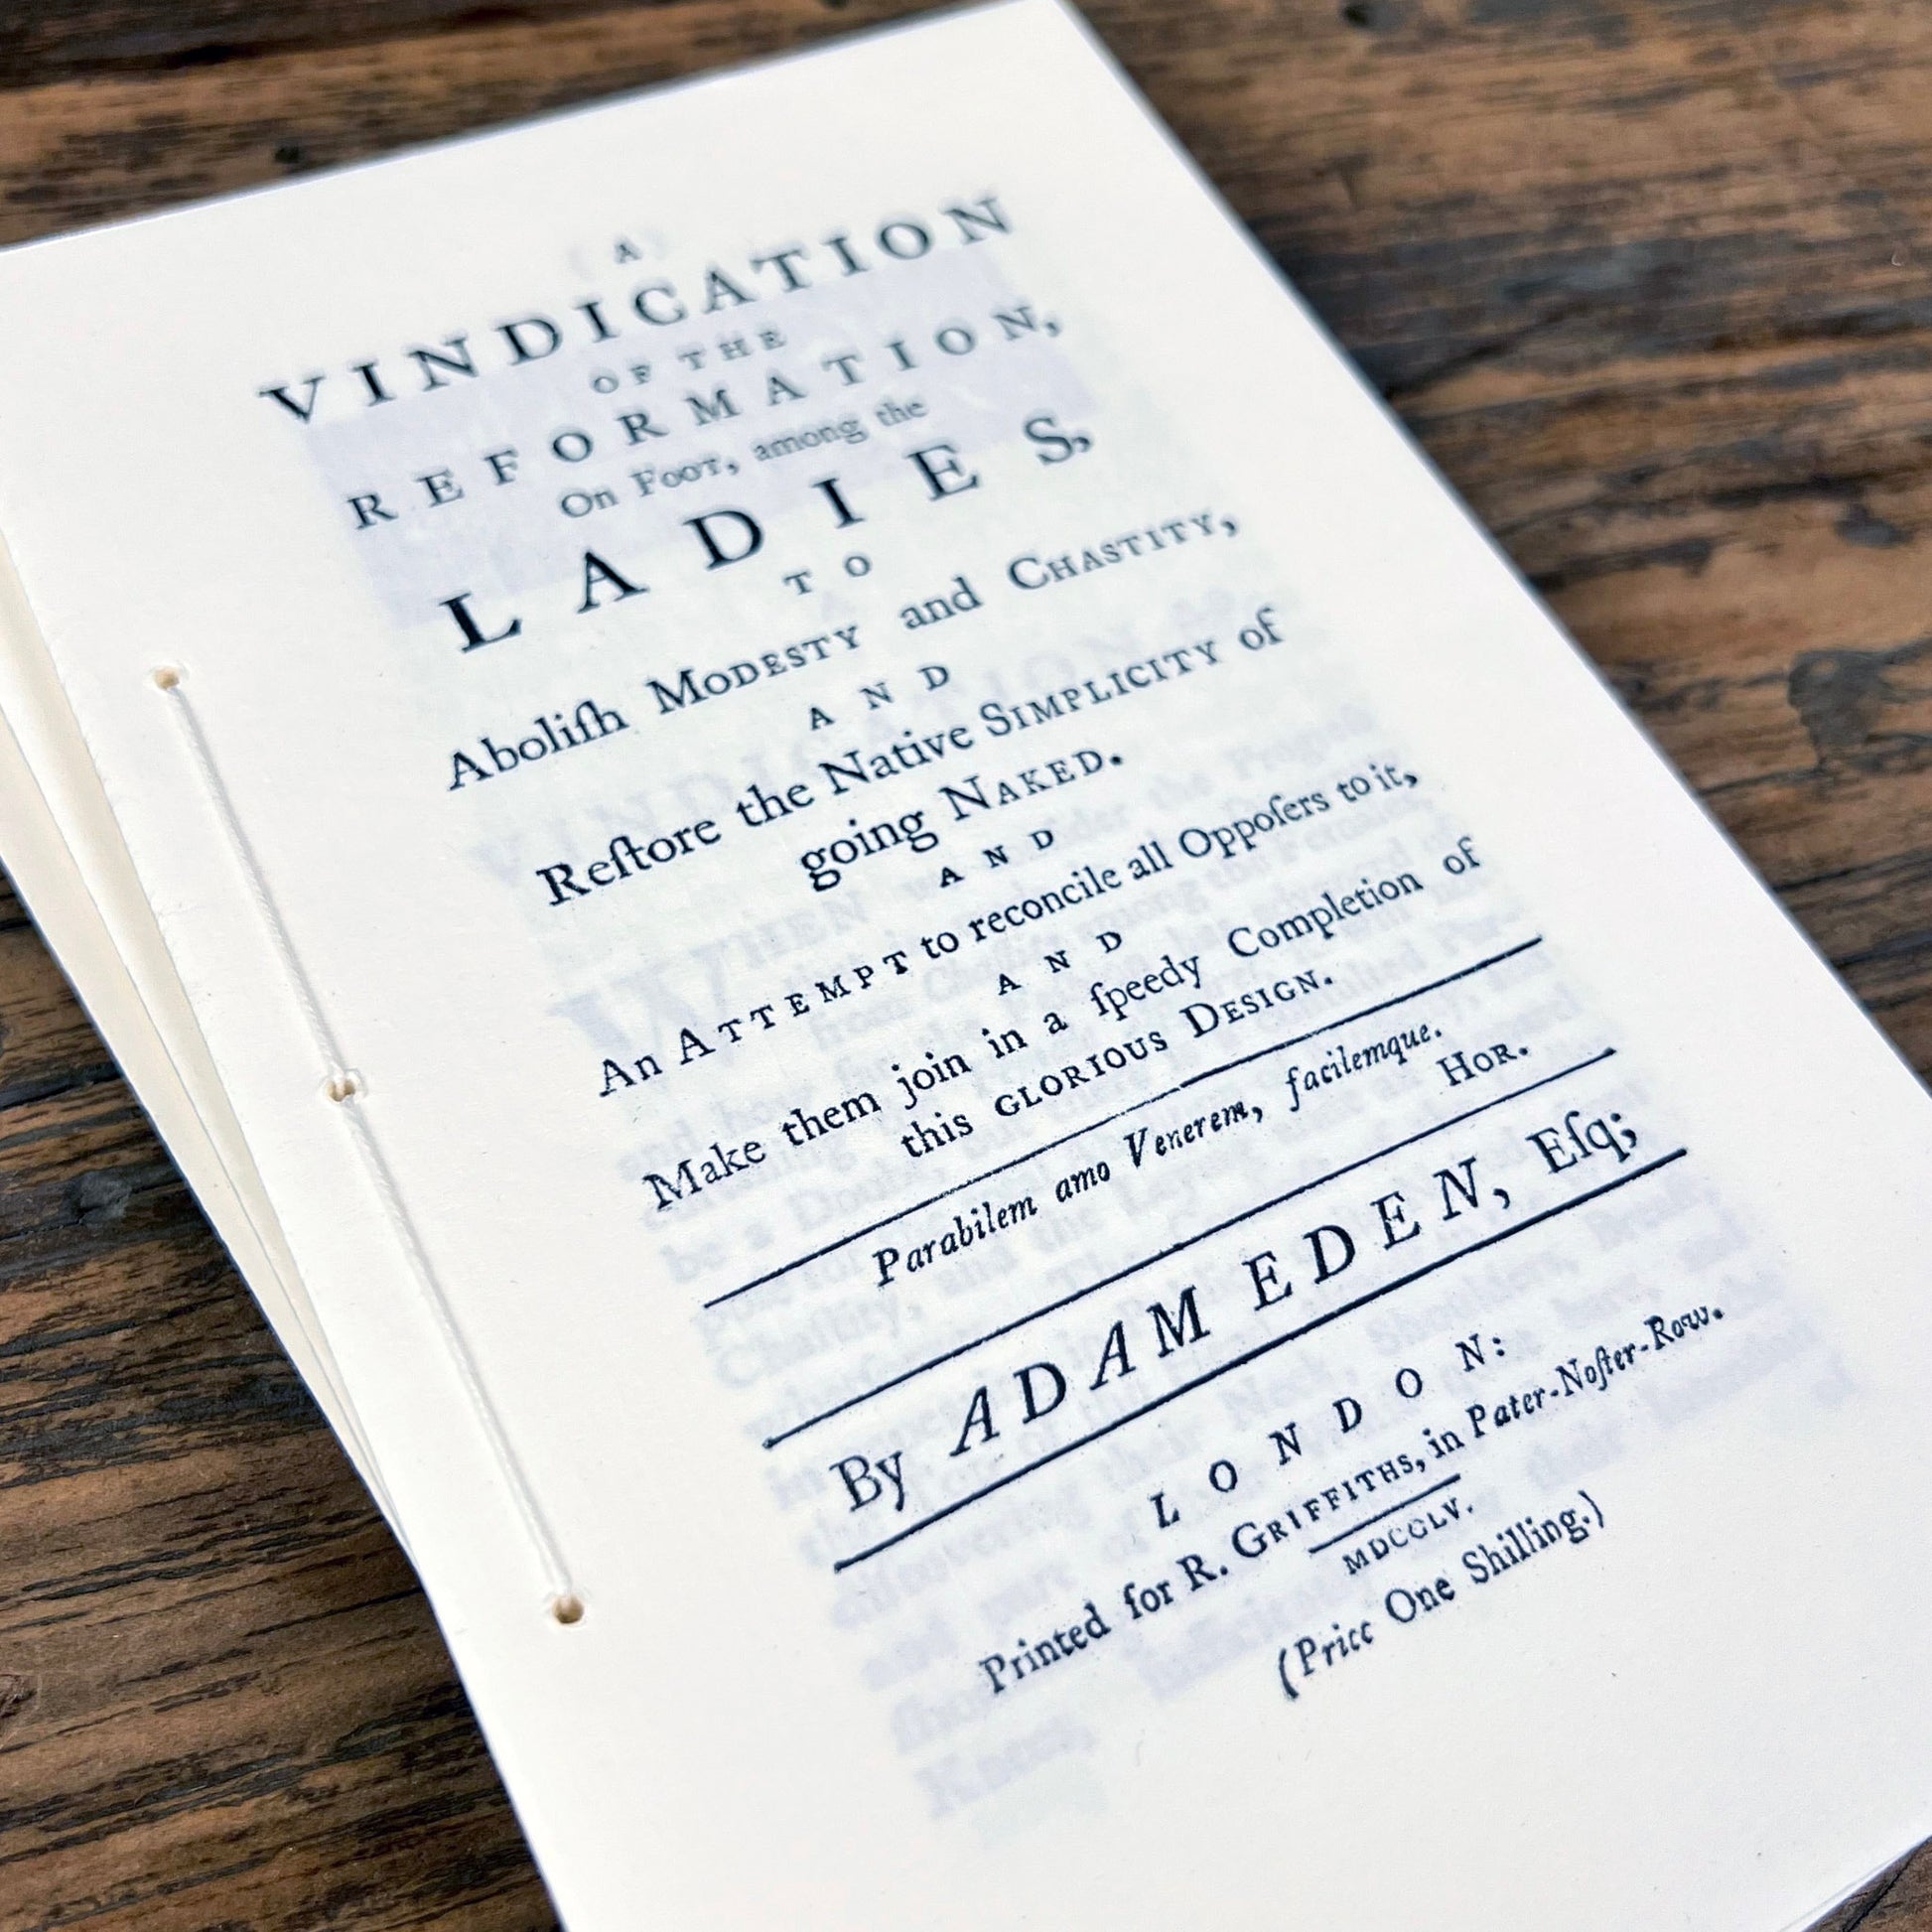 A
VINDICATION
OF THE
REFORMATION,
On FOOT, among the
LADIES,
TO
Aboliſh MODESTY and CHASTITY,
AND
Reſtore the Native SIMPLICITY of
going NAKED.
AND
An ATTEMPT to reconcile all Oppoſers to it,
AND
Make them join in a ſpeedy Completion of
this GLORIOUS DESIGN.
Parabilem amo Venerem, facilemque.
HOR.
By ADAM EDEN, Eſq;
LONDON:
Printed for R. GRIFFITHS, in Pater-Noſter-Row.
MDCCLV.
(Price One Shilling.)